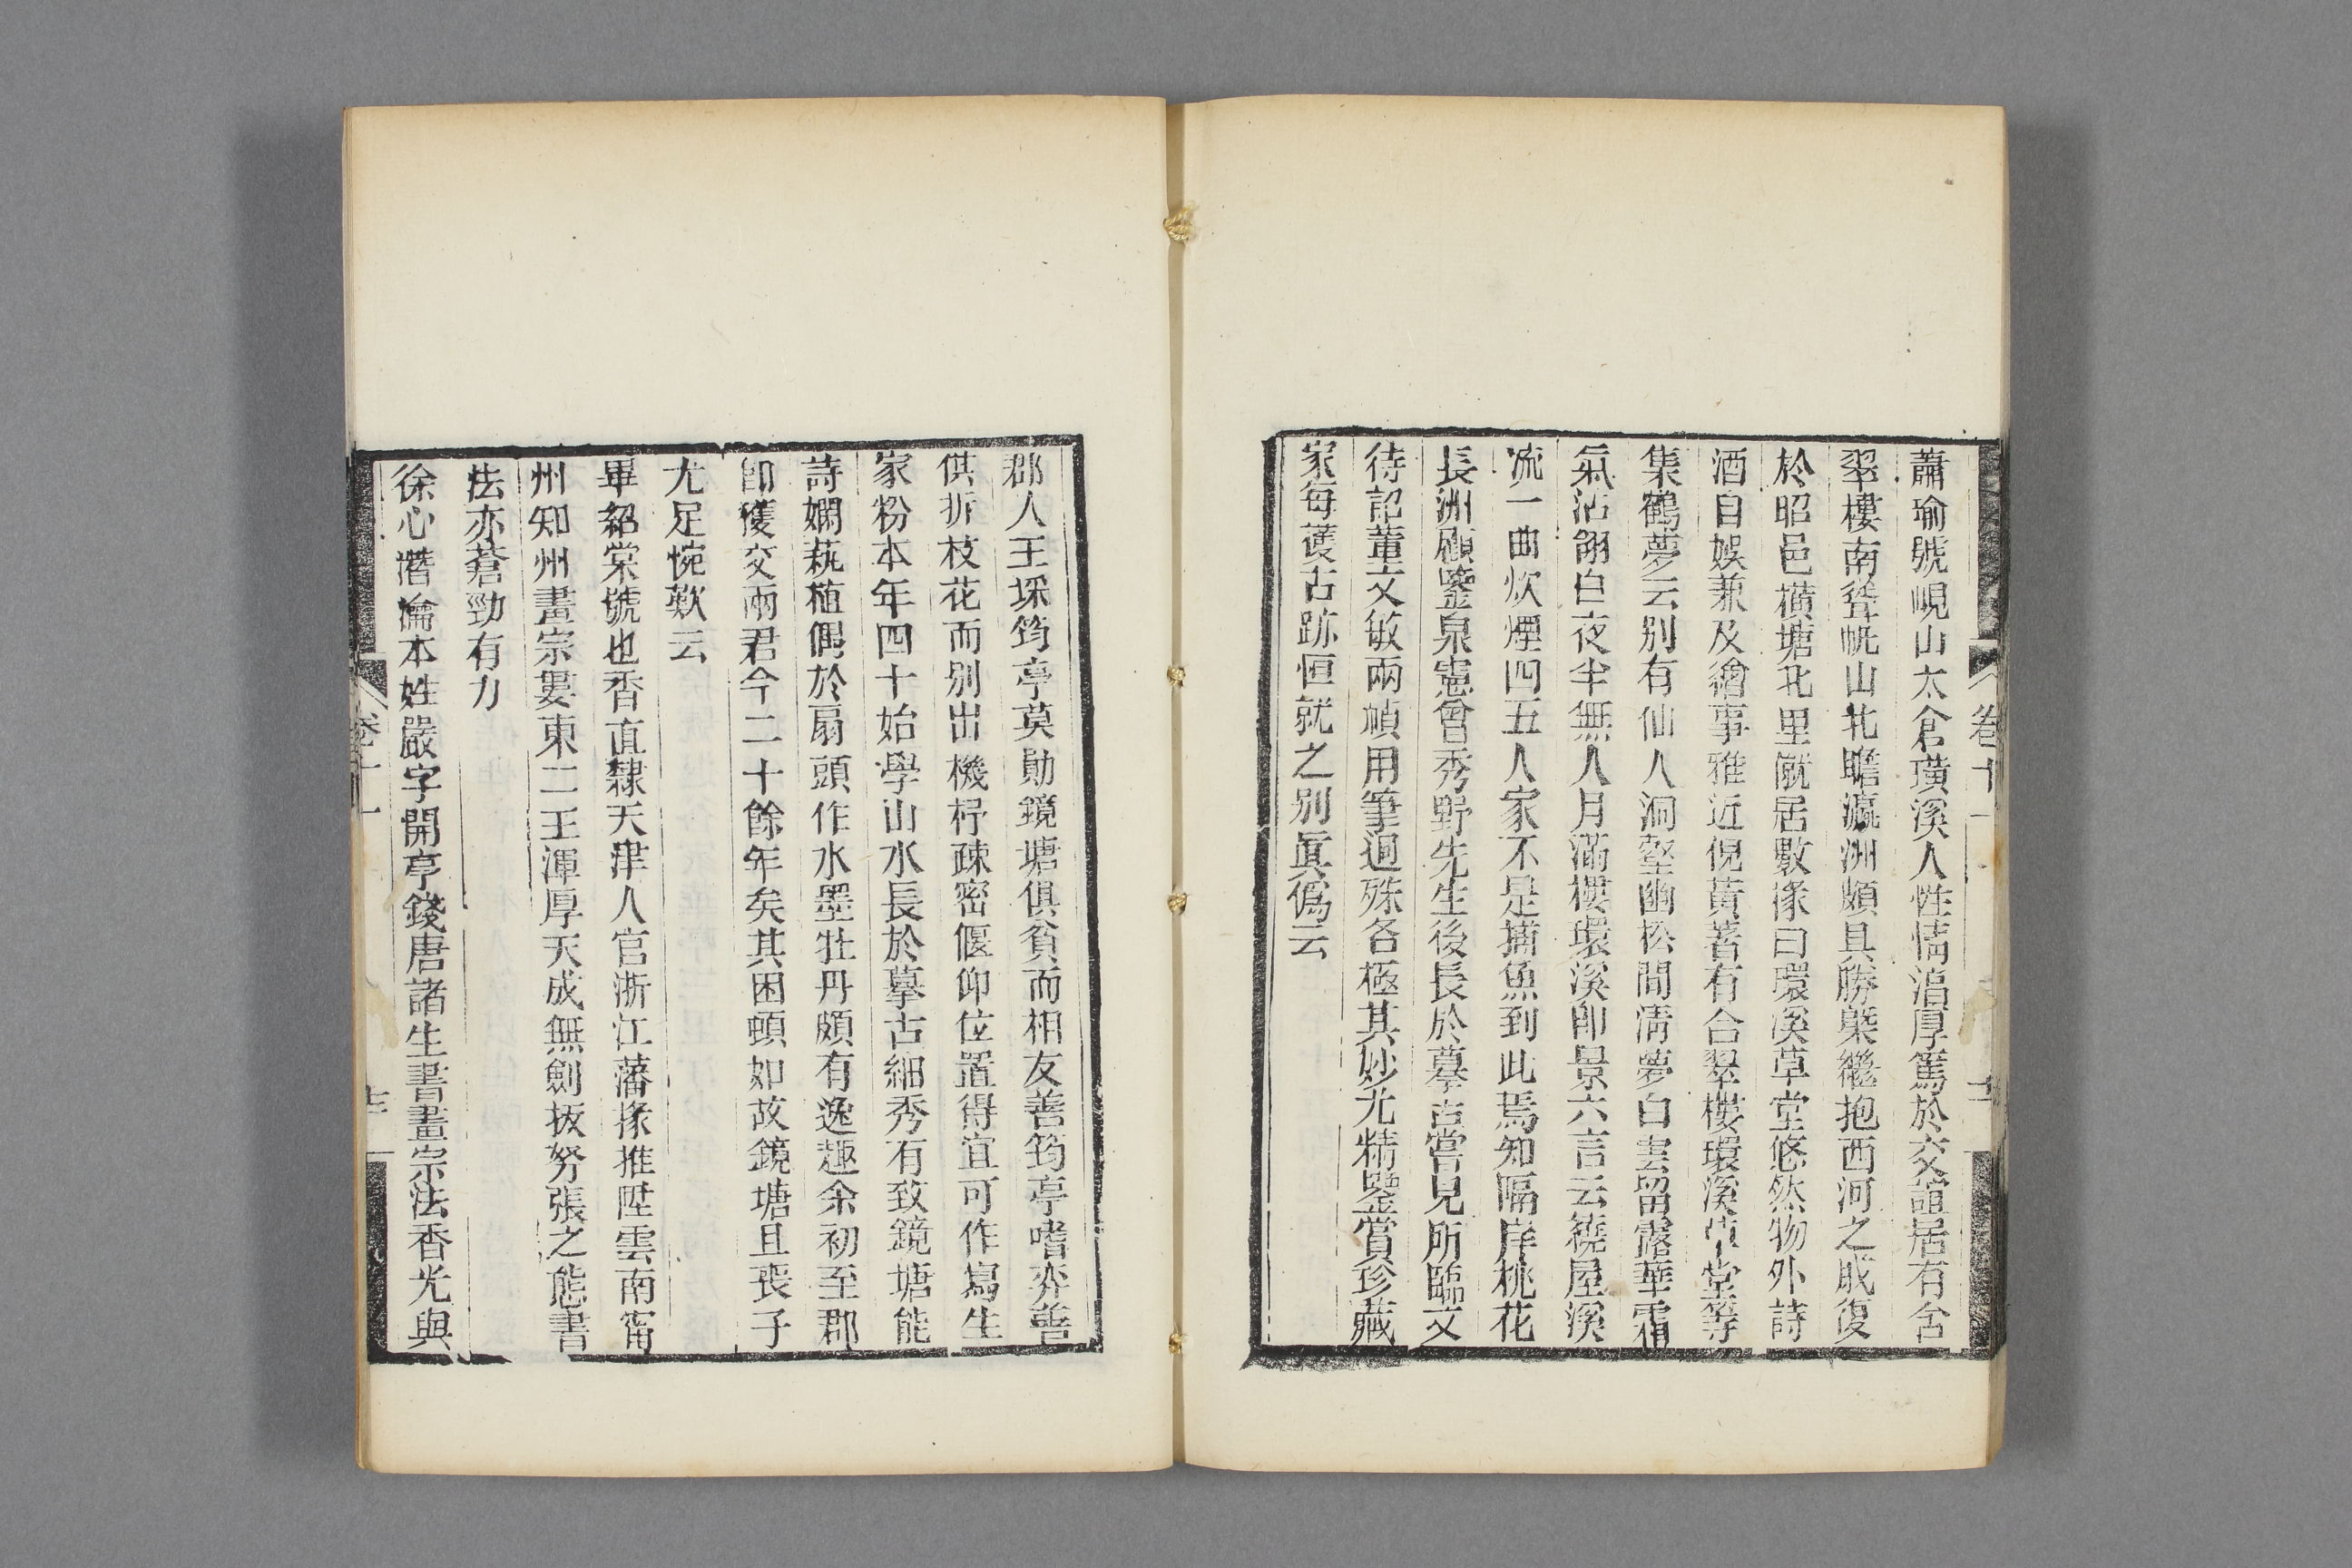 蕭瑜號峴山太倉璜溪人性情滔厚篤於交誼居有含
翠樓南聳帆山北瞻瀛洲頗具勝槩繼抱西河之戚復
於昭邑橫塘北里僦居數椽曰環溪草堂悠然物外詩
酒自娛兼及繪事雅近倪黃著有含翠樓環溪草堂等
集鶴夢云别有仙人洞壑幽松間淸夢白雲留露華霜
氣沾翎白夜半無人月滿樓環溪卽景六言云繞屋溪
流一曲炊煙四五人家不是捕魚到此焉知隔岸桃花
長洲顧鑒泉憲曾秀野先生後長於摹古嘗見所臨文
待詔董文敏兩幀用筆逈殊各極其妙尤精鑒賞珍藏
家每獲古跡恒就之别眞僞云
卷十一
郡人王埰筠亭莫勛鏡塘俱貧而相友善筠亭嗜弈善
供折枝花而别出機杼疎密偃仰位置得宜可作寫生
家粉本年四十始學山水長於摹古細秀有致鏡塘能
詩嫻蓺植偶於扇頭作水墨牡丹頗有逸趣余初至郡
卽獲交兩君今二十餘年矣其困頓如故鏡塘且喪子
尤足惋歎云
畢紹棠號也香直隸天津人官浙江藩掾推陞雲南甯
州知州畫宗婁東二王渾厚天成無劍拔弩張之態書
法亦蒼勁有力
徐心潛瀹本姓嚴字開亭錢唐諸生書畫宗法香光與
卷十一